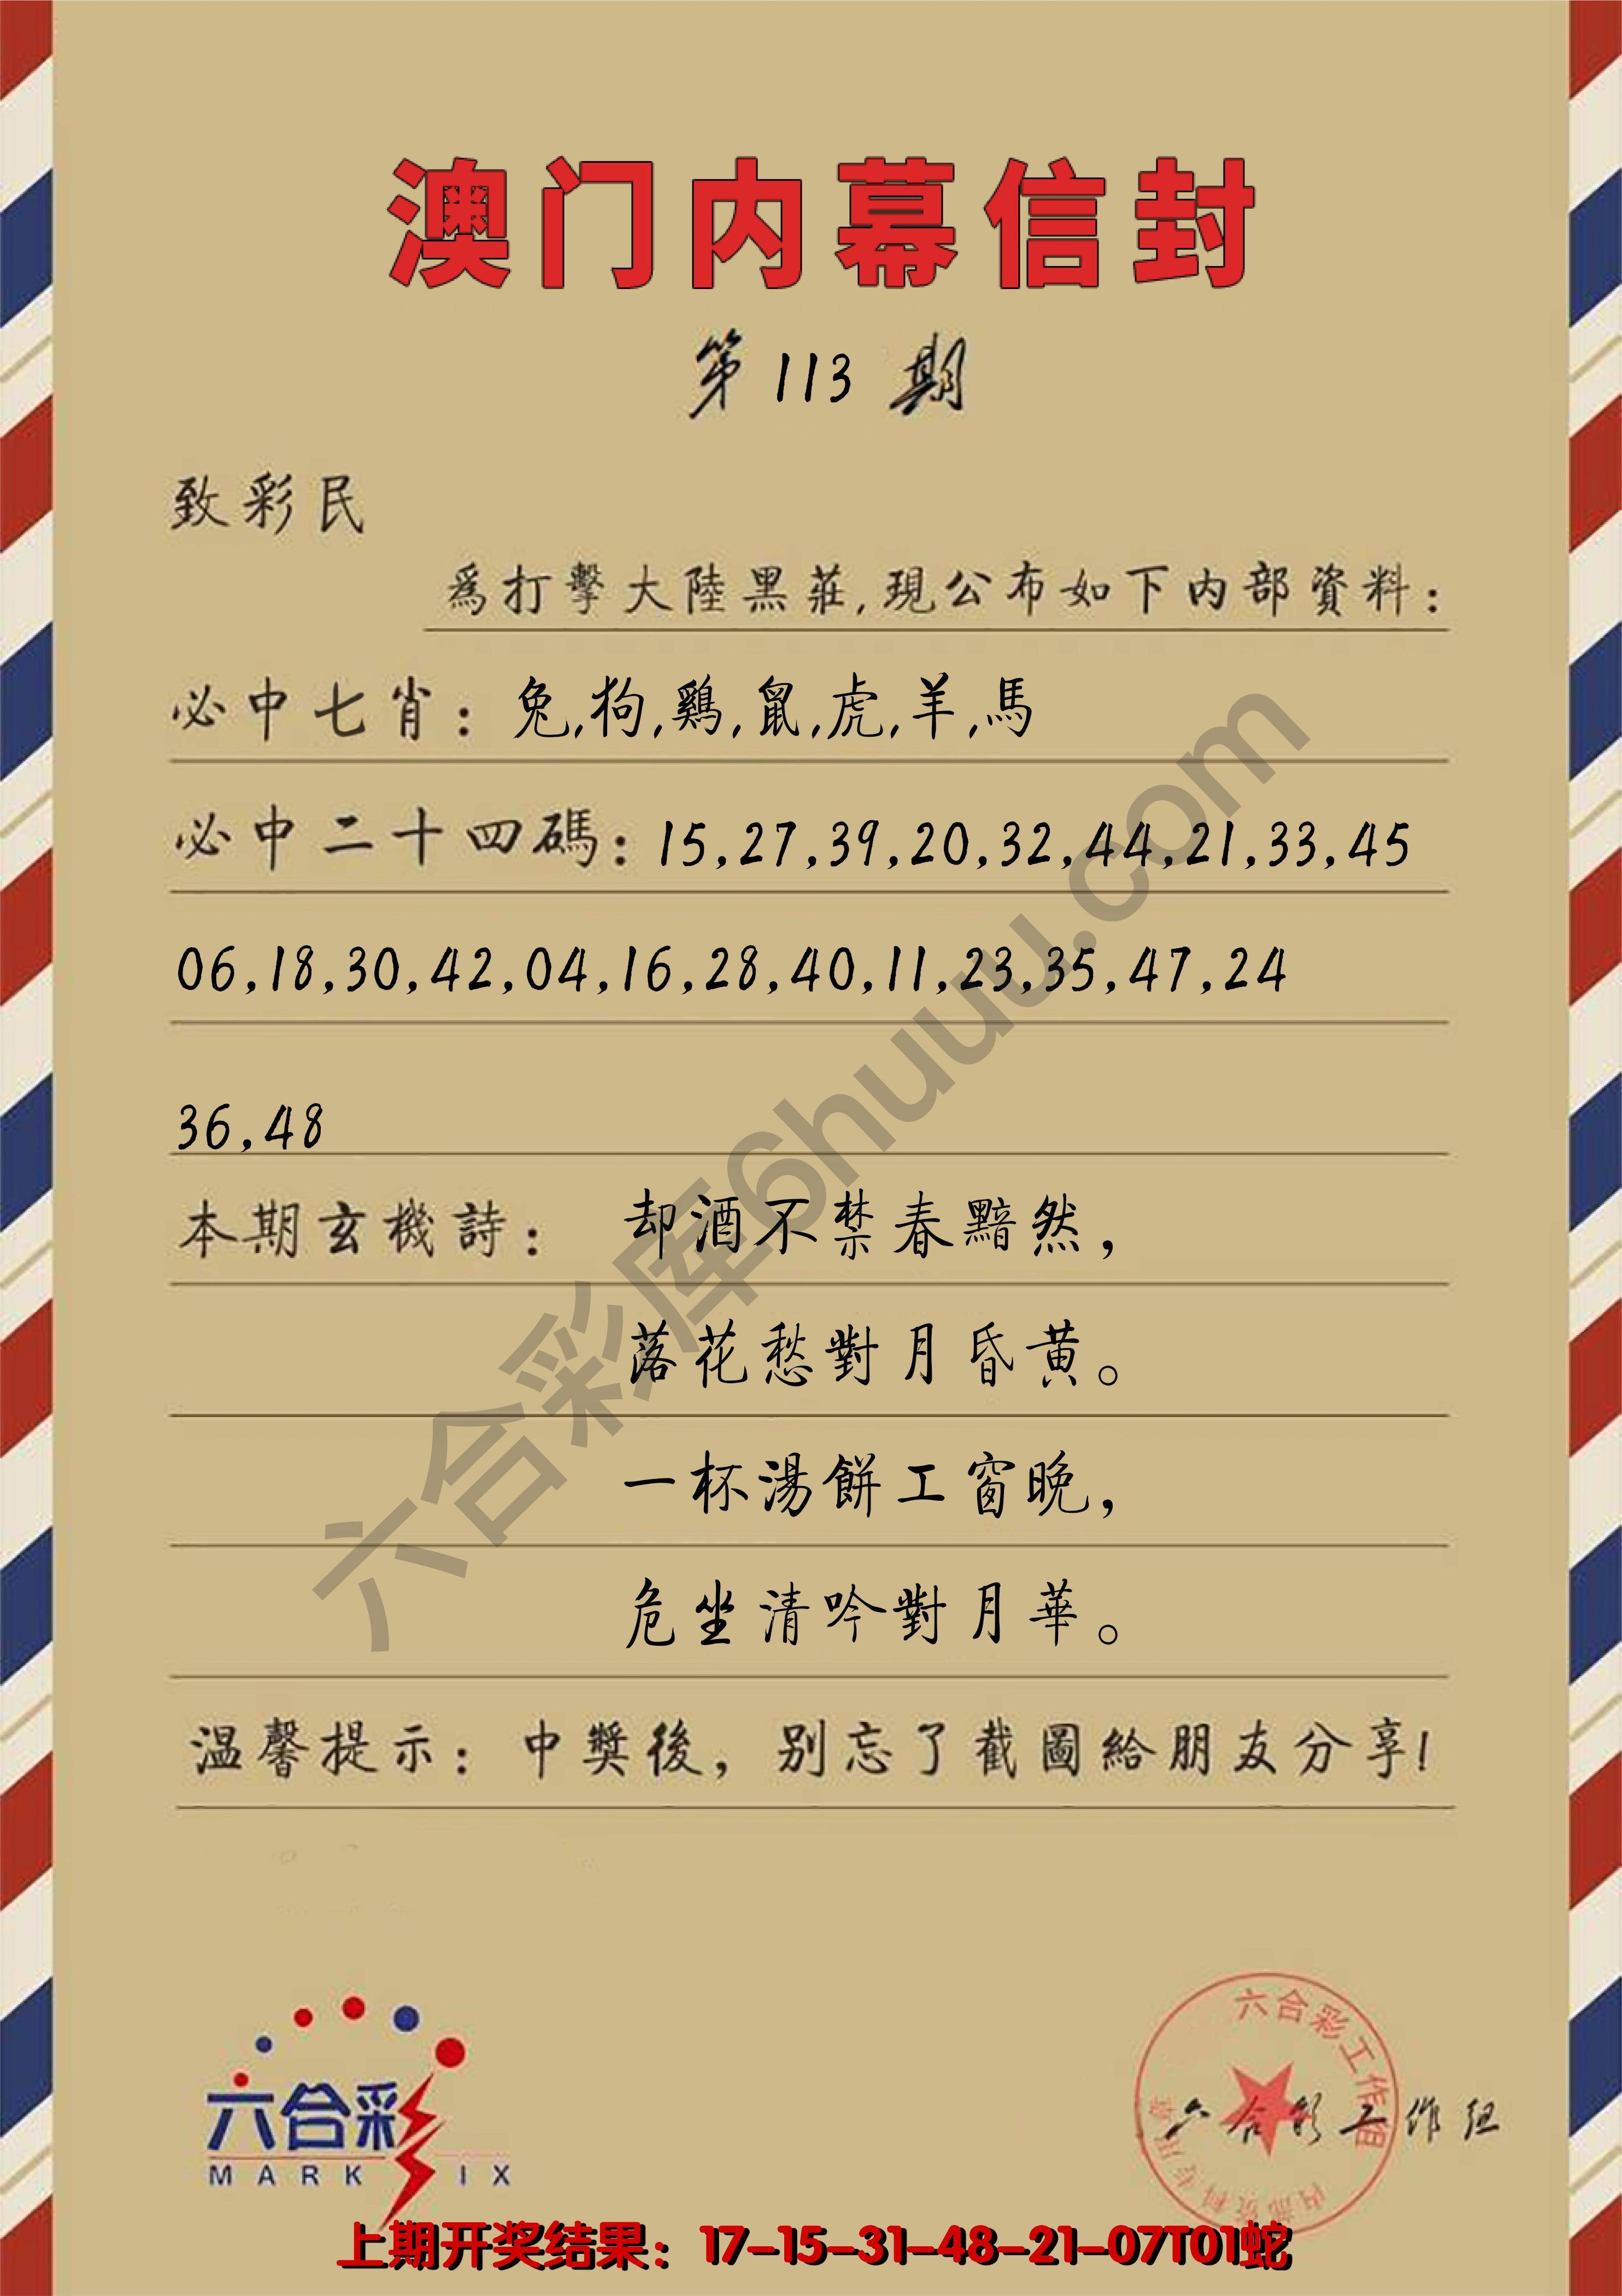 澳门内幕信封
第113期
致彩民
爲打擊大陸黑莊,現公布如下内部資料:
必中七肖:兔,狗,鷄,鼠,虎,羊,馬
必中二十四碼:15,27,39,20,32,44,21,33,45
06,18,30,42,04,16,28,40,11,23,35,47,24
36,48
本期玄機詩: 却酒不禁春黯然,
落花愁對月昏黄。
一杯湯餅工窗晚,
危坐清吟對月華。
温馨提示:中獎後,别忘了截圖給朋友分享!
六合彩库6huuu.com
六合彩
MARK IX
六合彩工作组
内部资料专用章
六合彩工作组
上期开奖结果:17-15-31-48-21-07T01蛇